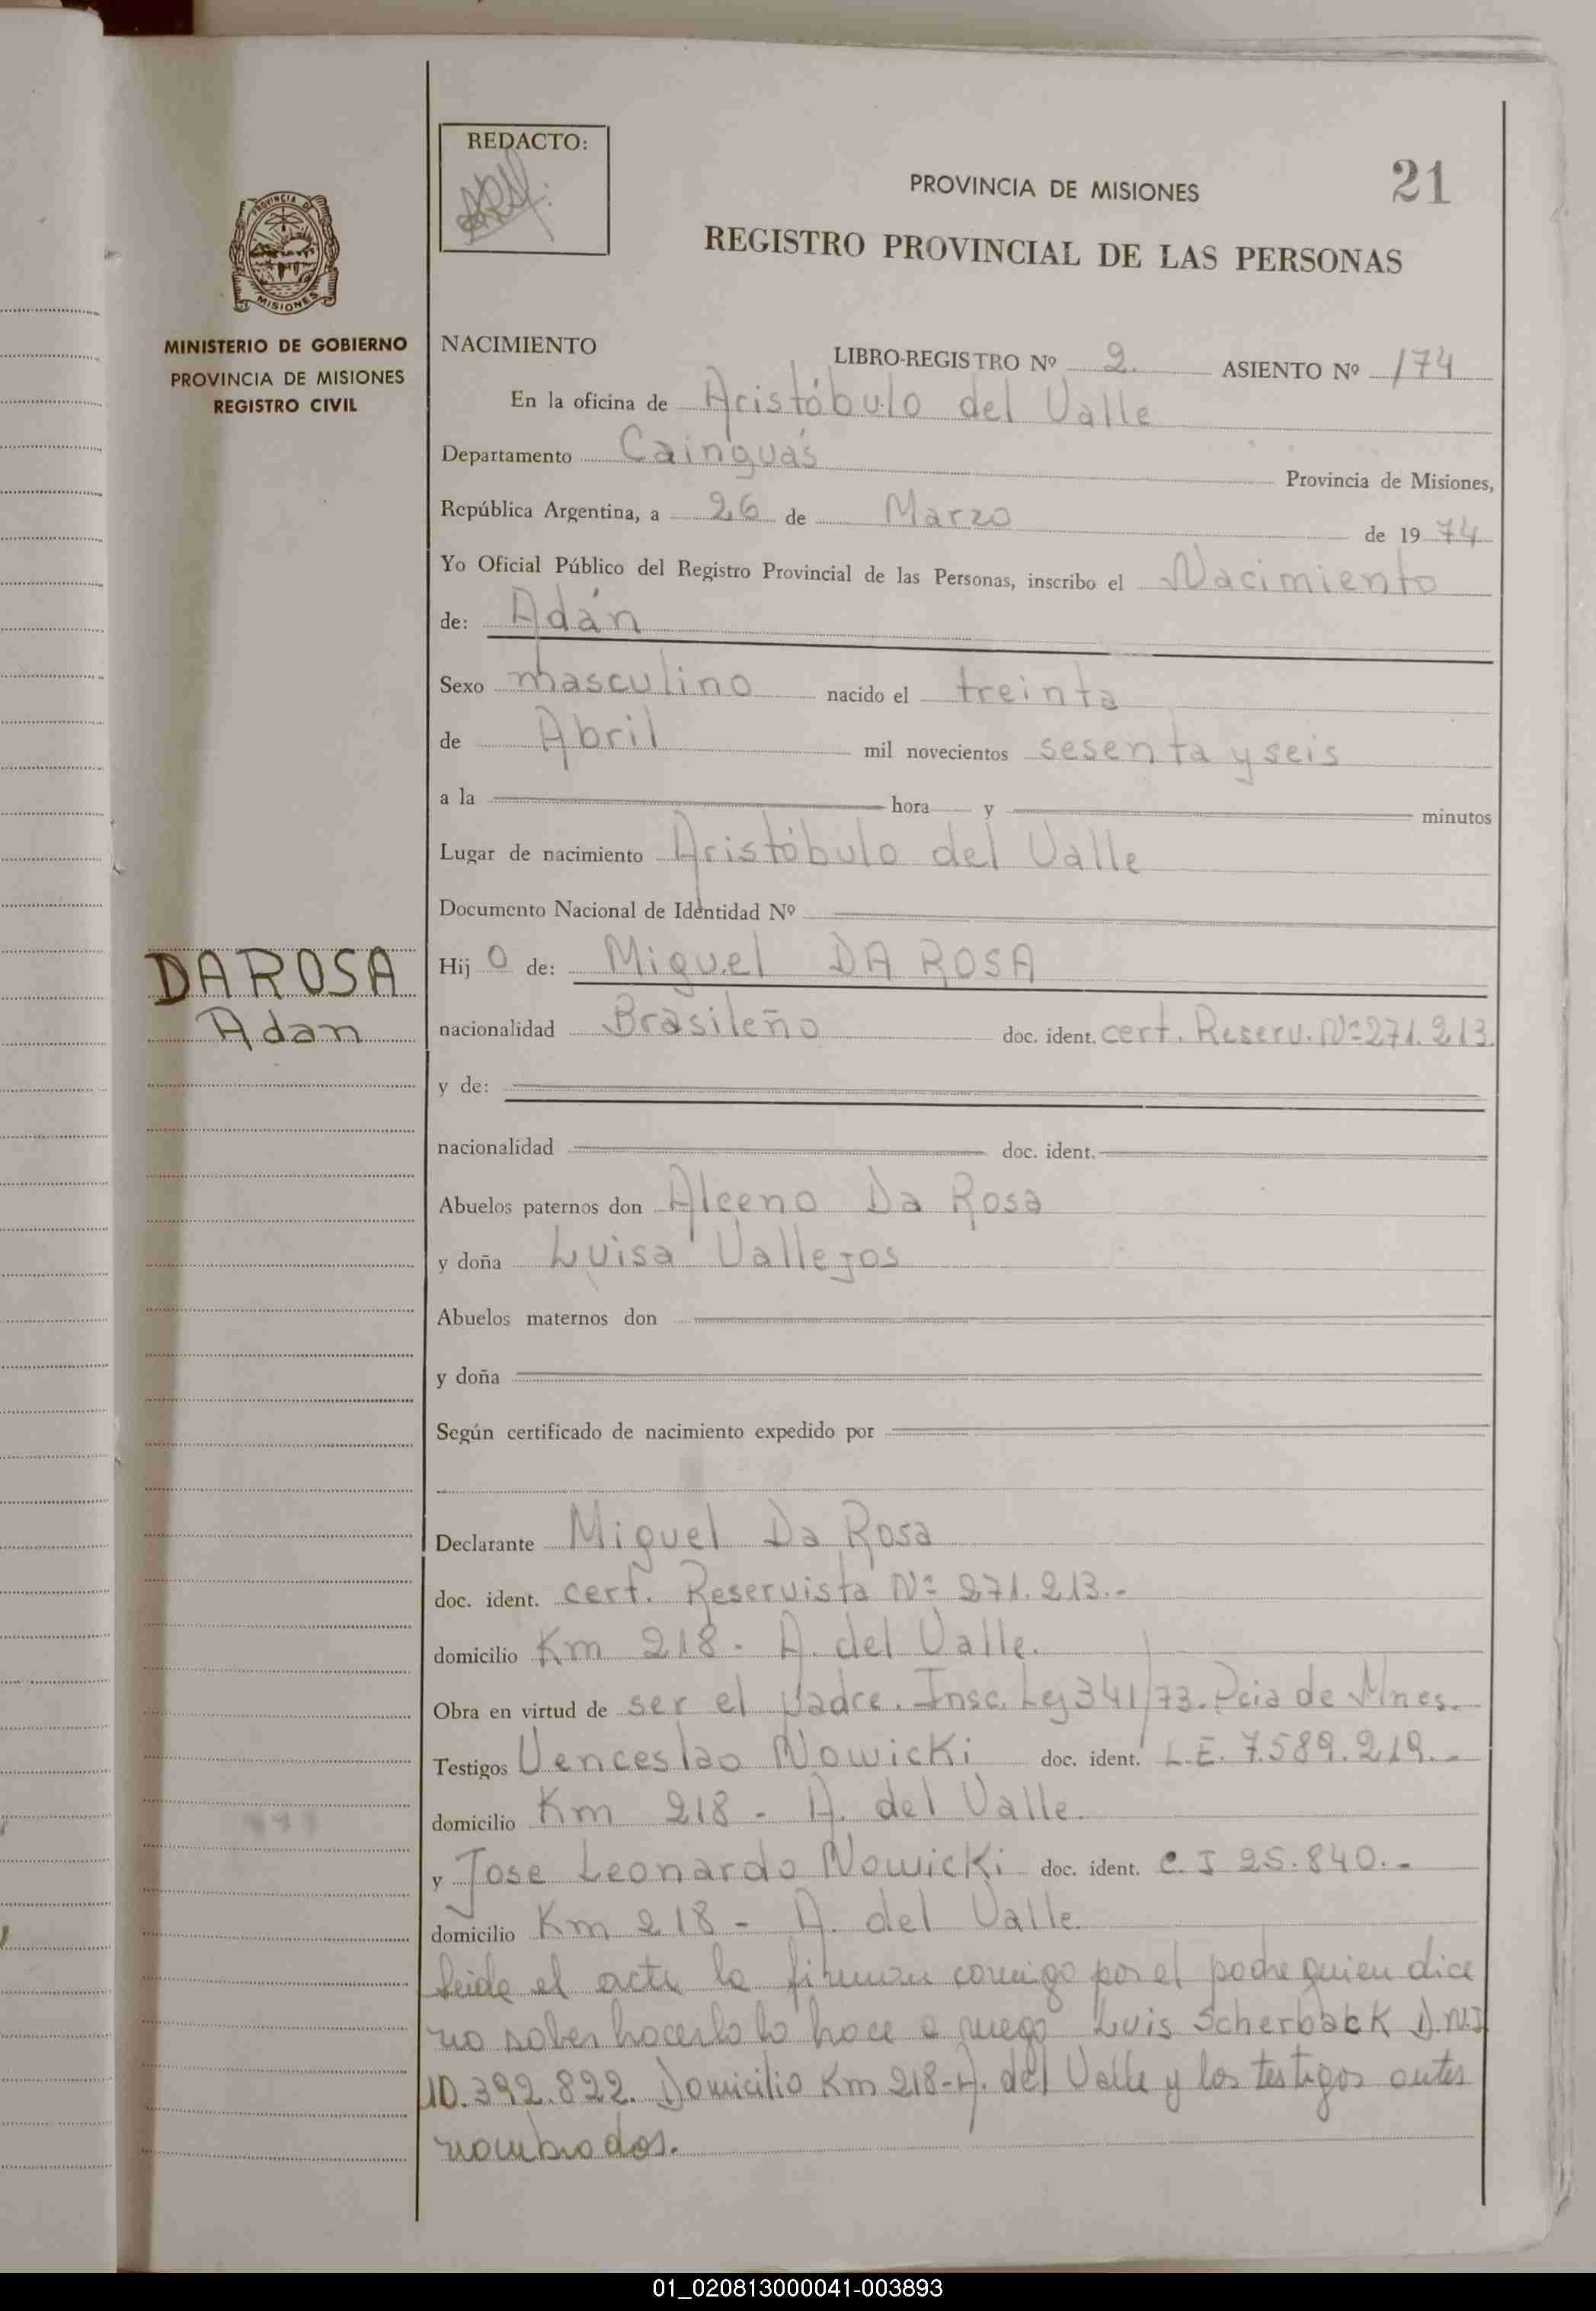 REDACTO:
PROVINCIA DE MISIONES
21
REGISTRO PROVINCIAL DE LAS PERSONAS
PROVINCIA DE
MISIONES
MINISTERIO DE GOBIERNO
PROVINCIA DE MISIONES
REGISTRO CIVIL
NACIMIENTO LIBRO-REGISTRO Nº 2. ASIENTO Nº 174
En la oficina de Aristóbulo del Valle
Departamento Cainguás Provincia de Misiones,
República Argentina, a 26 de Marzo de 1974
Yo Oficial Público del Registro Provincial de las Personas, inscribo el Nacimiento
de: Adán
Sexo masculino nacido el treinta
de Abril mil novecientos sesenta y seis
a la hora y minutos
Lugar de nacimiento Aristóbulo del Valle
Documento Nacional de Identidad Nº
DA ROSA
Adan
Hijo de: Miguel DA ROSA
nacionalidad Brasileño doc. ident. cert. Reserv. Nº 271.213.
y de:
nacionalidad doc. ident.
Abuelos paternos don Alceno Da Rosa
y doña Luisa Vallejos
Abuelos maternos don
y doña
Según certificado de nacimiento expedido por
Declarante Miguel Da Rosa
doc. ident. cert. Reservista Nº 271.213.-
domicilio Km 218 - A. del Valle.
Obra en virtud de ser el padre. Insc. Ley 341/73. Pcia de Mnes.
Testigos Venceslao Nowicki doc. ident. L.E. 7.589.219.-
domicilio Km 218 - A. del Valle.
y Jose Leonardo Nowicki doc. ident. C.I 25.840.-
domicilio Km 218 - A. del Valle.
Leida el acta la firman conmigo por el padre quien dice
no saber hacerlo lo hace a ruego Luis Scherback D.N.I
10.392.822. Domicilio Km 218-A. del Valle y los testigos antes
nombrados.
01_020813000041-003893